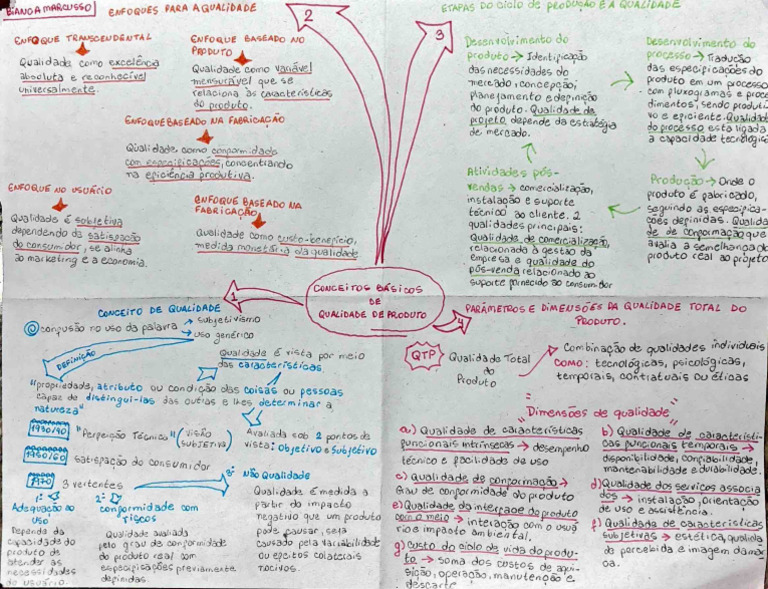 BIANCA MARCUSSO
ENFOQUES PARA A QUALIDADE
2
ENFOQUE TRANSCENDENTAL
Qualidade como excelência
absoluta e reconhecível
universalmente.
ENFOQUE BASEADO NO
PRODUTO
Qualidade como variável
mensurável que se
relaciona às características
do produto.
ENFOQUE BASEADO NA FABRICAÇÃO
Qualidade como conformidade
com especificações, concentrando
na eficiência produtiva.
ENFOQUE NO USUÁRIO
Qualidade é sobjetiva
dependendo da satisfação
do consumidor, se alinha
ao marketing e a economia.
ENFOQUE BASEADO NA
FABRICAÇÃO
Qualidade como custo-benefício,
medida monetária da qualidade
3
ETAPAS DO CICLO DE PRODUÇÃO E A QUALIDADE
Desenvolvimento do
produto → Identificação
das necessidades do
mercado, concepção,
planejamento e definição
do produto. Qualidade de
projeto depende da estratégia
de mercado.
Desenvolvimento do
processo → Tradução
das especificações do
produto em um processo
com fluxogramas e proce
dimentos, sendo produti
vo e eficiente. Qualidade
do processo esta ligada
a capacidade tecnológica
Produção → Onde o
produto é fabricado,
seguindo as especifica-
ções definidas. Qualida
de de conformação que
avalia a semelhança do
produto real ao projeto
Atividades pós-
vendas → comercialização,
instalação e suporte
técnico ao cliente. 2
qualidades principais:
Qualidade de comercialização,
relacionada à gestão da
empresa e qualidade do
pós-venda relacionado ao
suporte fornecido ao consumidor
CONCEITOS BÁSICOS
DE
QUALIDADE DE PRODUTO
1
CONCEITO DE QUALIDADE
confusão no uso da palavra → subjetivismo
→ uso genérico
DEFINIÇÃO
Qualidade é vista por meio
das características.
"propriedade, atributo ou condição das coisas ou pessoas
capaz de distingui-las das outras e lhes determinar a
natureza"
1930/40
"Perfeição Técnica" (visão
subjetiva)
Avaliada sob 2 pontos de
vista: objetivo e subjetivo
1950/60
Satisfação do consumidor
1970
3 vertentes
1ª
Adequação ao
uso
Depende da
capacidade do
produto de
atender as
necessidades
do usuário.
2ª
conformidade com
riscos
Qualidade avaliada
pelo grau de conformidade
do produto real com
especificações previamente
definidas.
3ª
NÃO Qualidade
Qualidade é medida a
partir do impacto
negativo que um produto
pode causar, seja
causado pela variabilidade
ou efeitos colaterais
nocivos.
4
PARÂMETROS E DIMENSÕES DA QUALIDADE TOTAL DO
PRODUTO.
QTP
Qualidade Total
do
Produto
Combinação de qualidades individuais
COMO: tecnológicas, psicológicas,
temporais, contratuais ou éticas
"Dimensões de qualidade"
a) Qualidade de características
funcionais intrínsecas → desempenho
técnico e facilidade de uso
b) Qualidade de característi-
cas funcionais temporais →
disponibilidade, confiabilidade,
mantenabilidade e durabilidade.
c) Qualidade de conformação →
Grau de conformidade do produto
d) Qualidade dos serviços associa
dos → instalação, orientação
de uso e assistência.
e) Qualidade da interface do produto
com o meio → interação com o usuá
rio e impacto ambiental.
f) Qualidade de características
subjetivas → estética, qualida
de percebida e imagem da mar
ca.
g) Custo do ciclo de vida do produ-
to → soma dos custos de aqui-
sição, operação, manutenção e
descarte